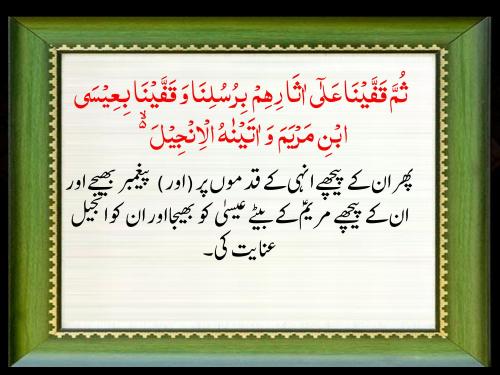 ثُمَّ قَفَّيْنَا عَلٰٓى اٰثَارِهِمْ بِرُسُلِنَا وَ قَفَّيْنَا بِعِيْسَى
ابْنِ مَرْيَمَ وَ اٰتَيْنٰهُ الْاِنْجِيْلَ ۙ۬
پھر ان کے پیچھے انہی کے قدموں پر (اور) پیغمبر بھیجے اور
ان کے پیچھے مریمؑ کے بیٹے عیسیٰ کو بھیجا اور ان کو انجیل
عنایت کی۔